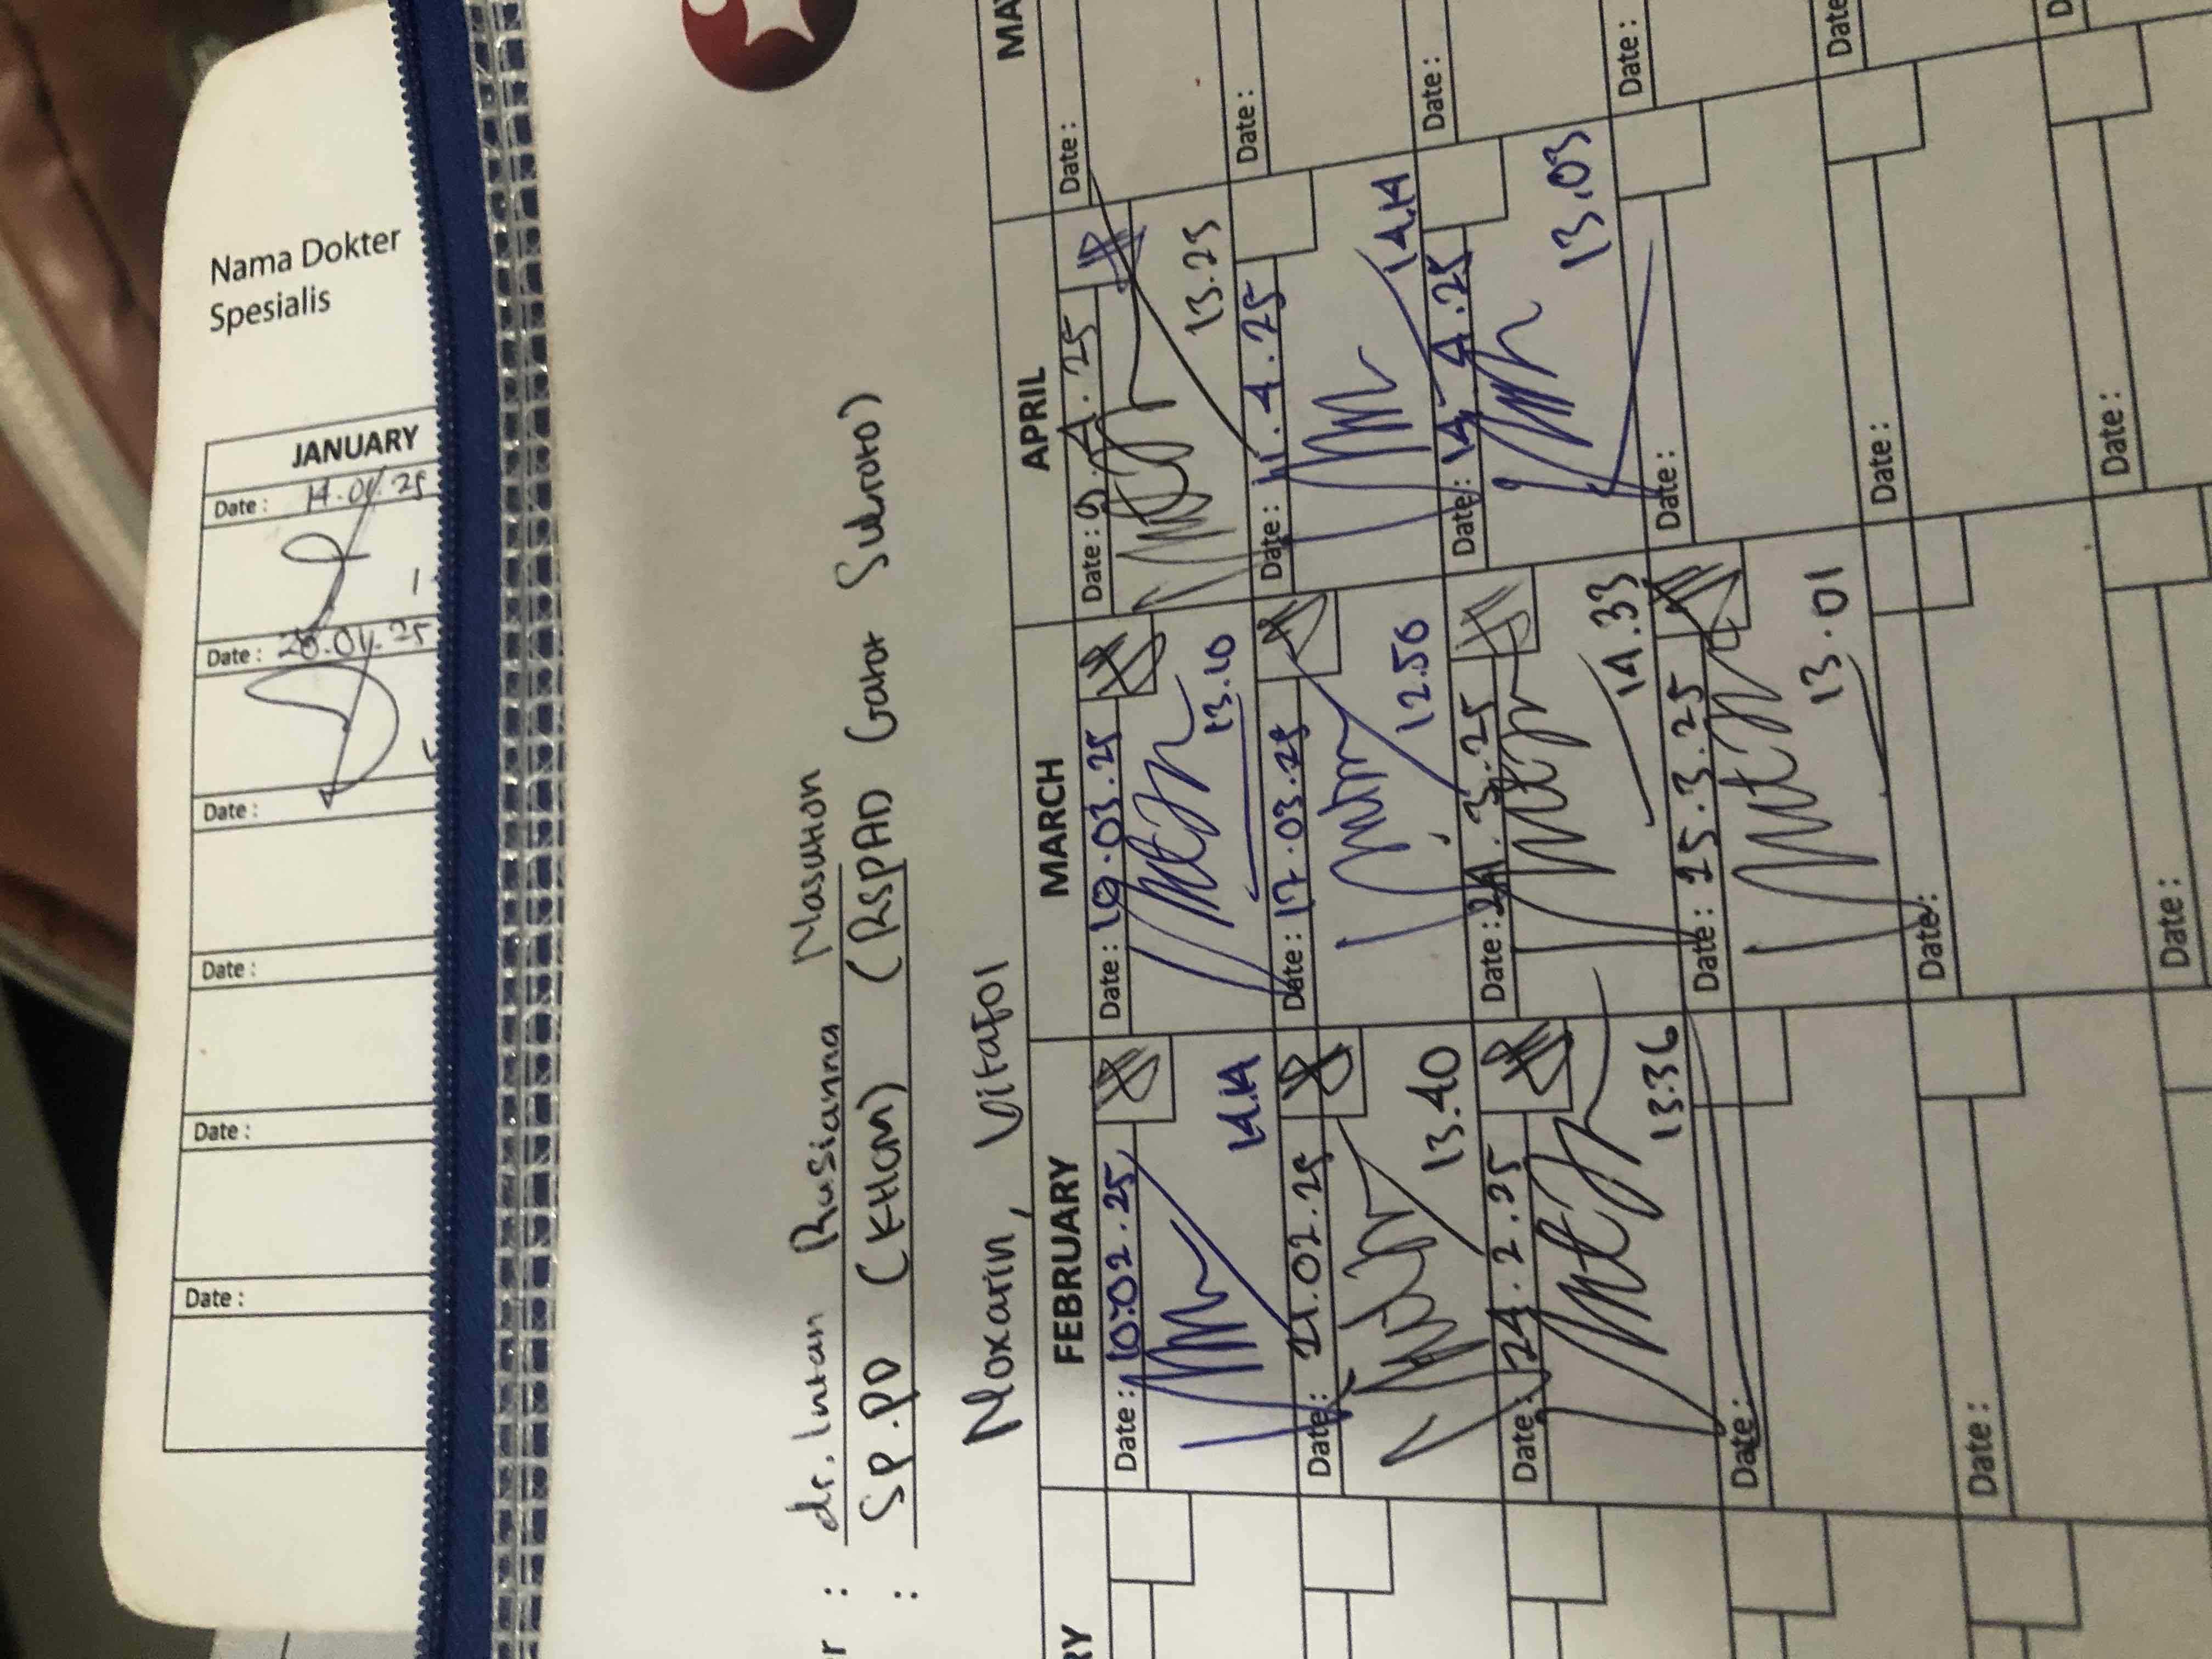 Nama Dokter
Spesialis
JANUARY
Date : 14.01.25
Date : 28.01.25
Date :
Date :
Date :
Date :
r : dr. Intan Rusianna Nasution
: SP.PD (KHOM) (RSPAD Gatot Subroto)
Noxarin, Vitafol
RY
FEBRUARY
MARCH
APRIL
MA
Date : 10.02.25
14.14
Date : 10.03.25
13.10
Date : 9.4.25
13.25
Date :
Date : 21.02.25
13.40
Date : 17.03.25
12.50
Date : 11.4.25
14.14
Date :
Date : 24.2.25
13.36
Date : 24.3.25
14.33
Date : 14.4.25
13.03
Date :
Date :
Date : 25.3.25
13.01
Date :
Date :
Date :
Date :
Date :
Date
Date :
Date :
D